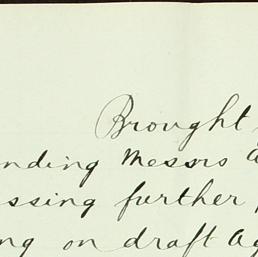 Brought
nding Messrs
ssing further
ng on draft Ag